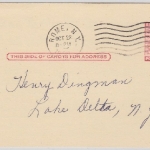 ROME, N.Y.
THIS SIDE OF CARD IS FOR ADDRESS
Henry Dingman
Lake Delta, N.Y.